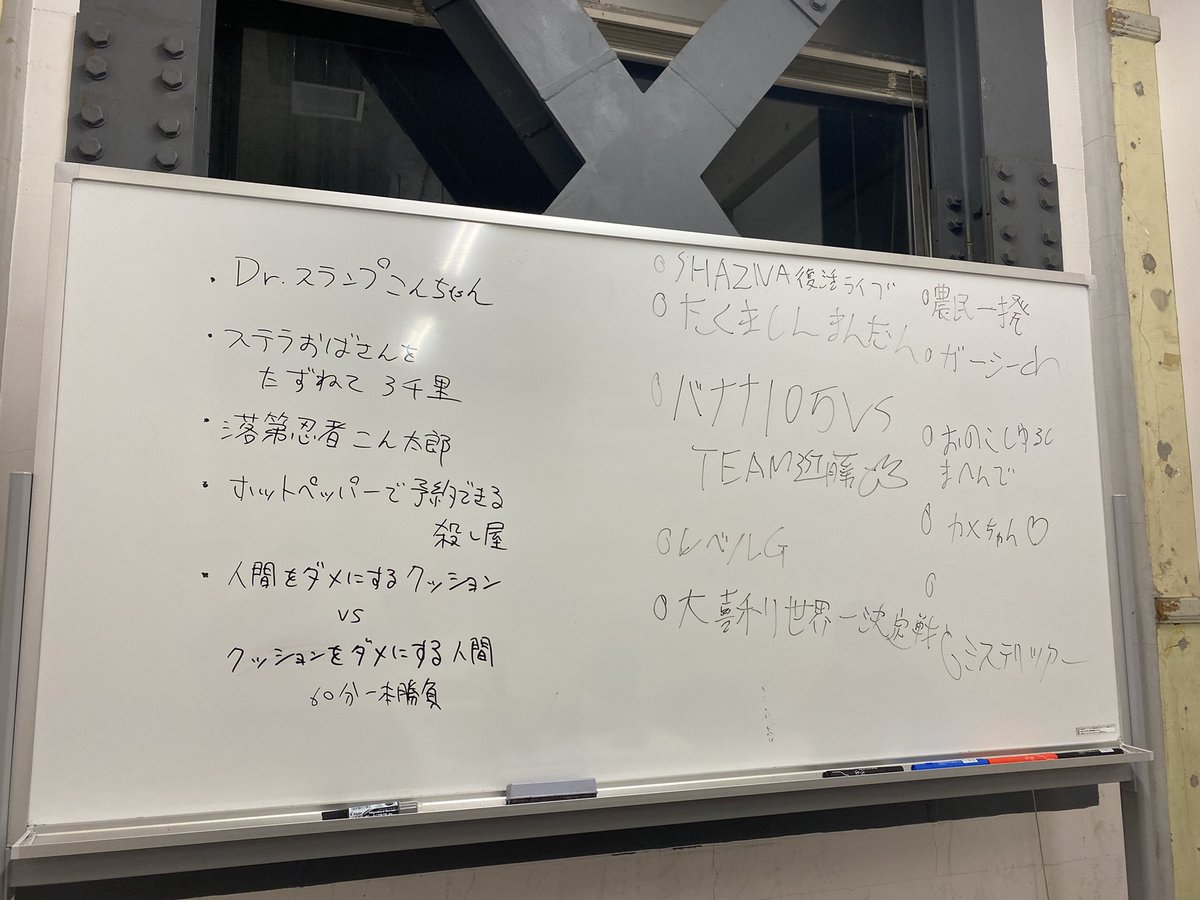 ・Dr.スランプこんちゃん
・ステラおばさんを
たずねて3千里
・落第忍者こん太郎
・ホットペッパーで予約できる
殺し屋
・人間をダメにするクッション
VS
クッションをダメにする人間
60分一本勝負
SHAZNA復活ライブ
たくましんまんだん
バナナ105VS
TEAM近藤
レベルG
大喜利世界一決定戦
農民一揆
ガーシーch
おのこしゆるし
まへんで
カメちゃん♡
ミステリッガー